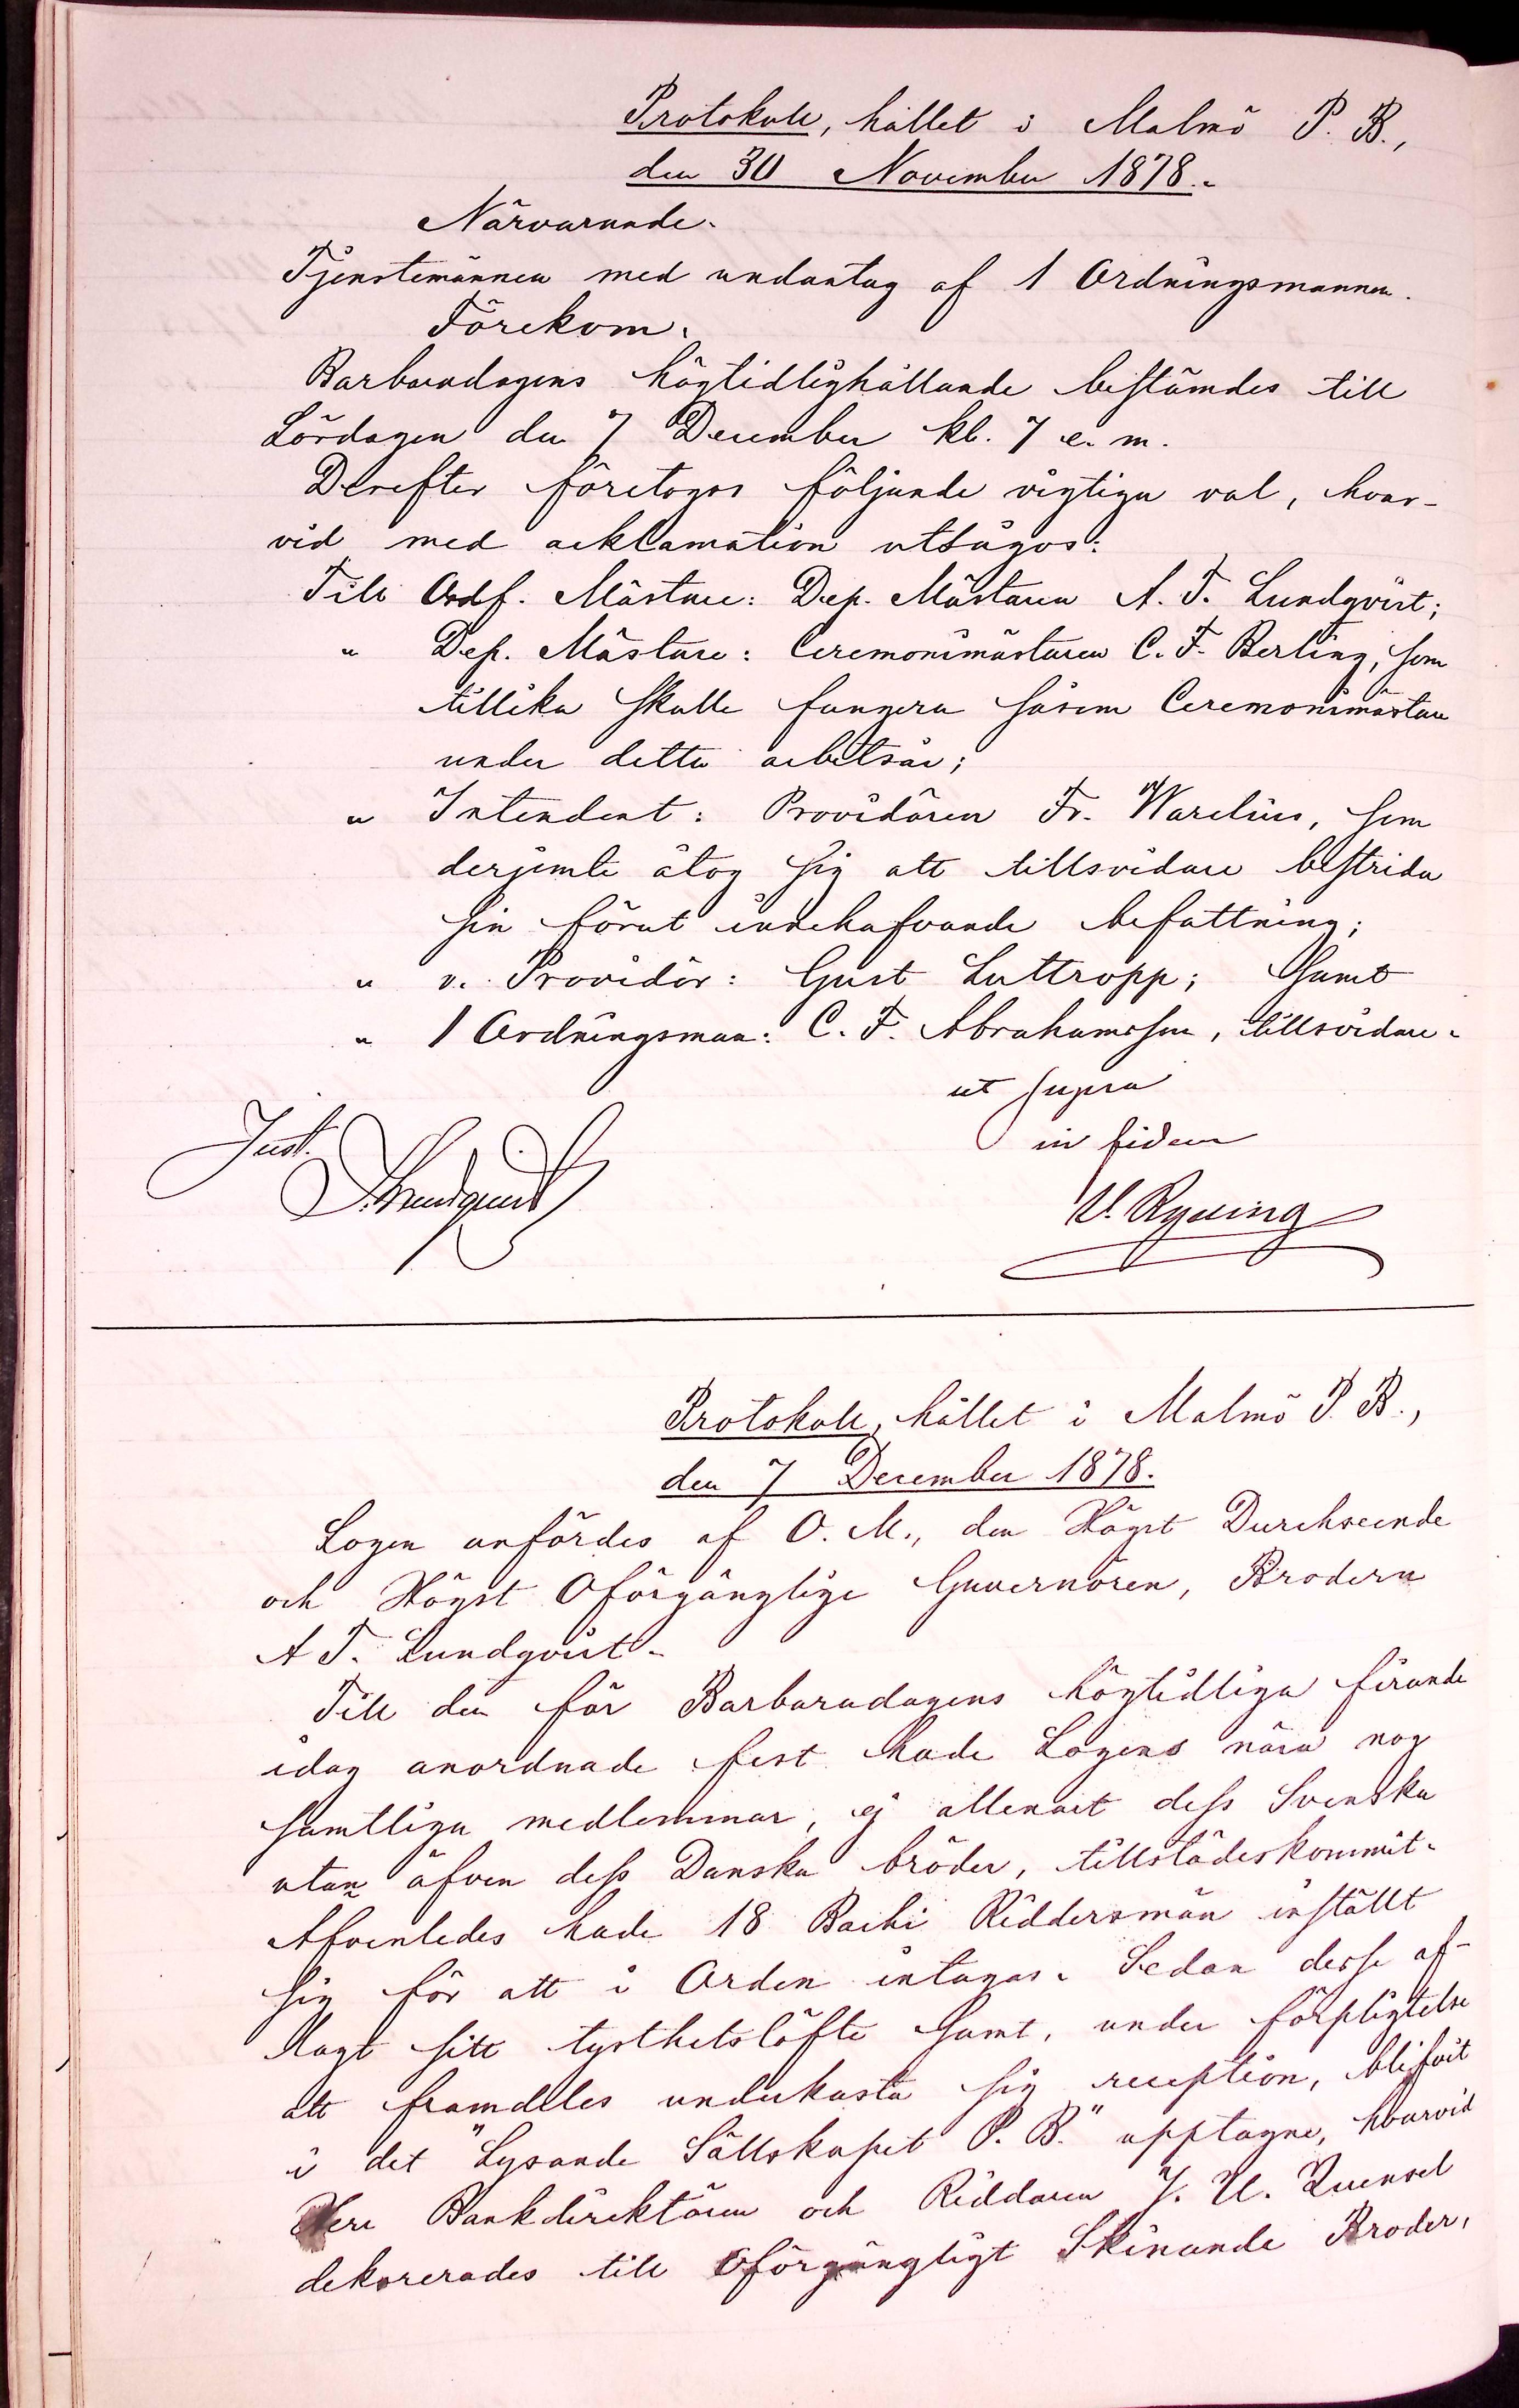 Protokoll, hållet i Malmö P. B.,
den 30 November 1878.
Närvarande.
Tjenstemännen med undantag af 1 Ordningsmannen.
Förekom.
Barbaradagens högtidlighållande bestämdes till
Lördagen den 7 December kl. 7 e. m.
Derefter företogos följande vigtiga val, hvar-
vid med acklamation utsågos:
Till Ordf. Mästare: Dep. Mästaren A. T. Lundqvist;
" Dep. Mästare: Ceremonimästaren C. F. Berling, som
tillika skulle fungera såsom Ceremonimästare
under detta arbetsår;
" Intendent: Providören Fr. Warelius, som
derjemte åtog sig att tillsvidare bestrida
sin förut innehafvande befattning;
" v. Providör: Gust Luttropp; samt
" 1 Ordningsman: C. F. Abrahamsson, tillsvidare.
ut supra
in fidem
Just.
A. T. Lundquist
U. Ryding
Protokoll, hållet i Malmö P. B.,
den 7 December 1878.
Logen anfördes af O. M., den Högst Durchseende
och Högst Oförgänglige Guvernören, Brodern
A T. Lundqvist.
Till den för Barbaradagens högtidliga firande
idag anordnade fest hade Logens nära nog
samtliga medlemmar, ej allenast dess Svenska
utan äfven dess Danska bröder, tillstädeskommit.
Afvenledes hade 18 Bachi Riddersmän inställt
sig för att i Orden intagas. Sedan desse af-
lagt sitt tysthetslöfte samt, under förpligtelse
att framdeles underkasta sig reception, blifvit
i det "Lysande Sällskapet P. B." upptagne, hvarvid
Herr Bankdirektören och Riddaren J. U. Quensel
dekorerades till Oförgängligt Skinande Broder,